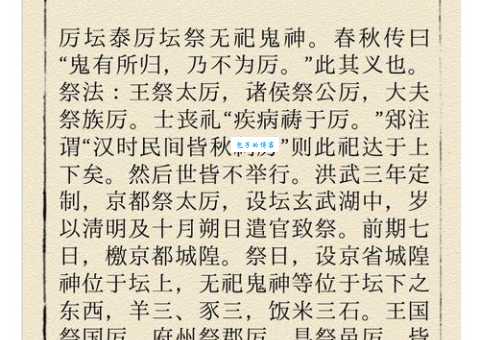 厉坛泰厉坛祭无祀鬼神。春秋传曰
“鬼有所归，乃不为厉。”此其义也。
祭法：王祭太厉，诸侯祭公厉，大夫
祭族厉。士丧礼“疾病祷于厉。”郑注
谓“汉时民间皆秋 ”则此祀达于上
包子的博客
下矣。然后世皆不举行。洪武三年定
制，京都祭太厉，设坛玄武湖中，岁
以清明及十月朔日遣官致祭。前期七
日，檄京都城隍。祭日，设京省城隍
神位于坛上，无祀鬼神等位于坛下之
东西，羊三、豕三，饭米三石。王国
祭国厉，府州祭郡厉，县祭邑厉，皆